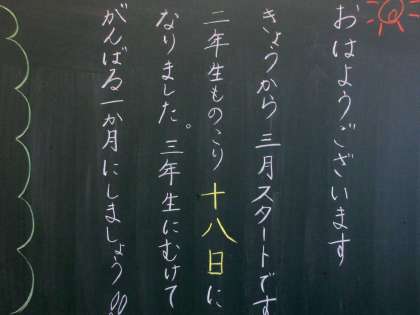 おはようございます
きょうから三月スタートです
二年生ものこり十八日に
なりました。三年生にむけて
がんばる一か月にしましょう!!